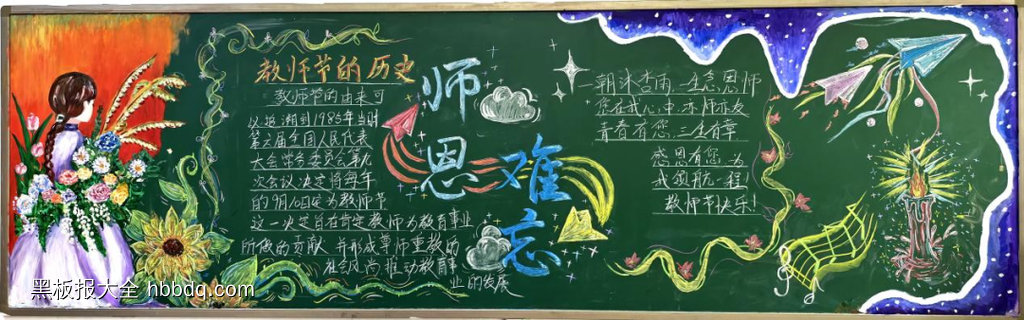 教师节的历史
教师节的由来可
以追溯到1985年当时
第六届全国人民代表
大会常务委员会第九
次会议决定将每年
的9月10日定为教师节
这一决定旨在肯定教师为教育事业
所做的贡献 并形成尊师重教的
社会风尚推动教育事
业的发展
师恩难忘
一朝沐杏雨,一生念恩师
您在我心中,亦师亦友
青春有您,三生有幸
感恩有您 为
我领航一程
教师节快乐!
黑板报大全 hbbdq.com